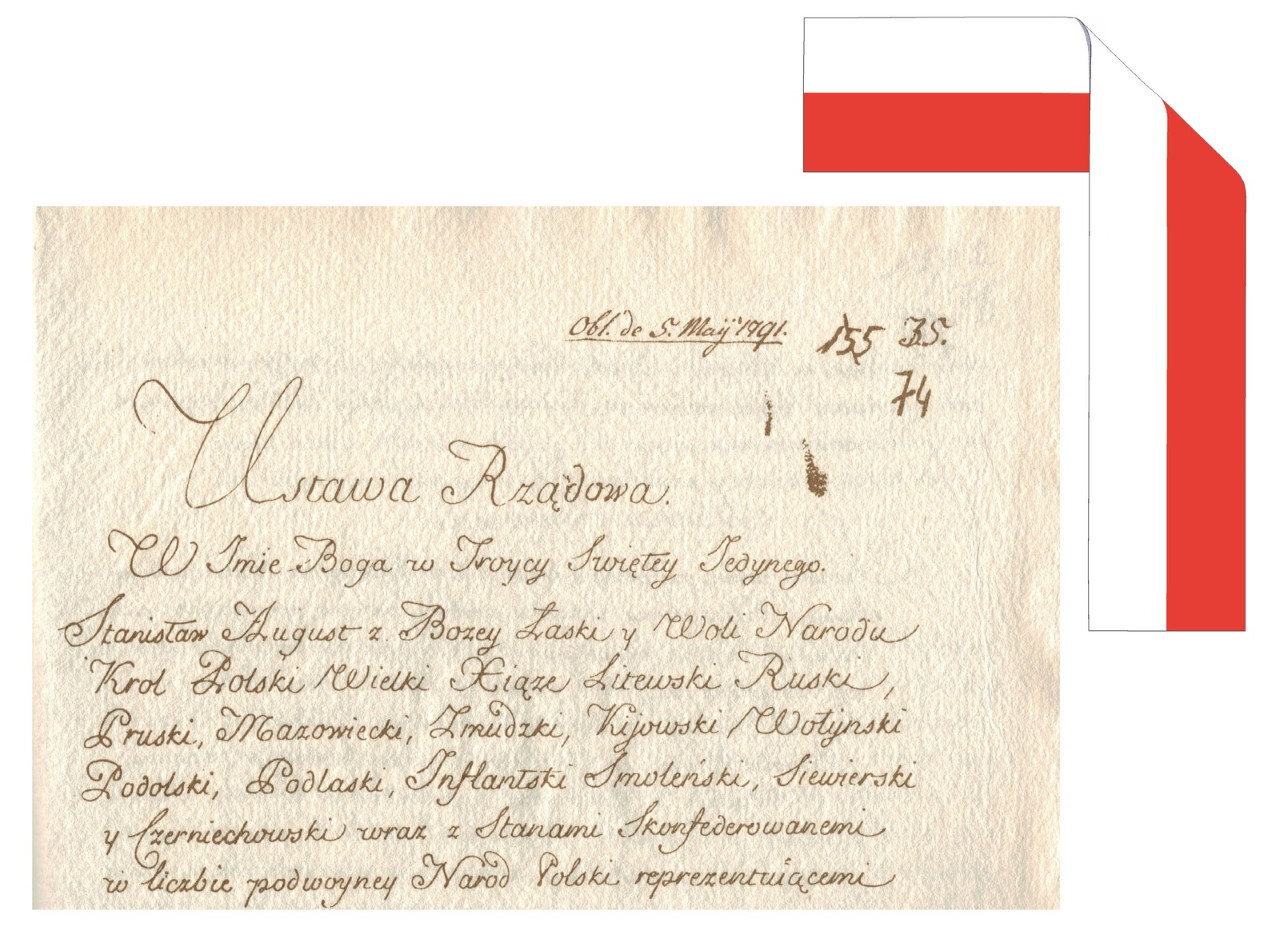 Obl. de 5. Maÿ 1791. 155 35.
74
Ustawa Rządowa.
W Imie Boga w Troycy Swiętey Jedynego.
Stanisław August z Bozey Łaski y Woli Narodu
Krol Polski Wielki Xiąze Litewski Ruski,
Pruski, Mazowiecki, Zmudzki, Kijowski Wołynski
Podolski, Podlaski, Inflantski Smoleński, Siewierski
y Czerniechowski wraz z Stanami Skonfederowanemi
w liczbie podwoyney Narod Polski reprezentuiącemi